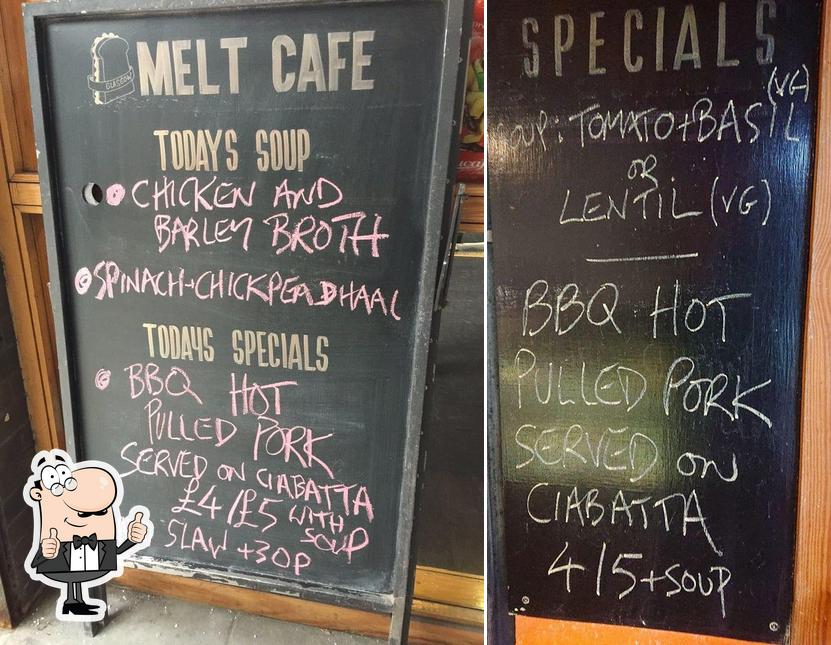 MELT CAFE
GLASGOW
TODAYS SOUP
CHICKEN AND
BARLEY BROTH
SPINACH+CHICKPEA DHAAL
TODAYS SPECIALS
BBQ HOT
PULLED PORK
SERVED ON CIABATTA
£4/£5 WITH SOUP
SLAW +30P
SPECIALS
SOUP: TOMATO+BASIL (VG)
OR
LENTIL (VG)
BBQ HOT
PULLED PORK
SERVED ON
CIABATTA
4/5+SOUP